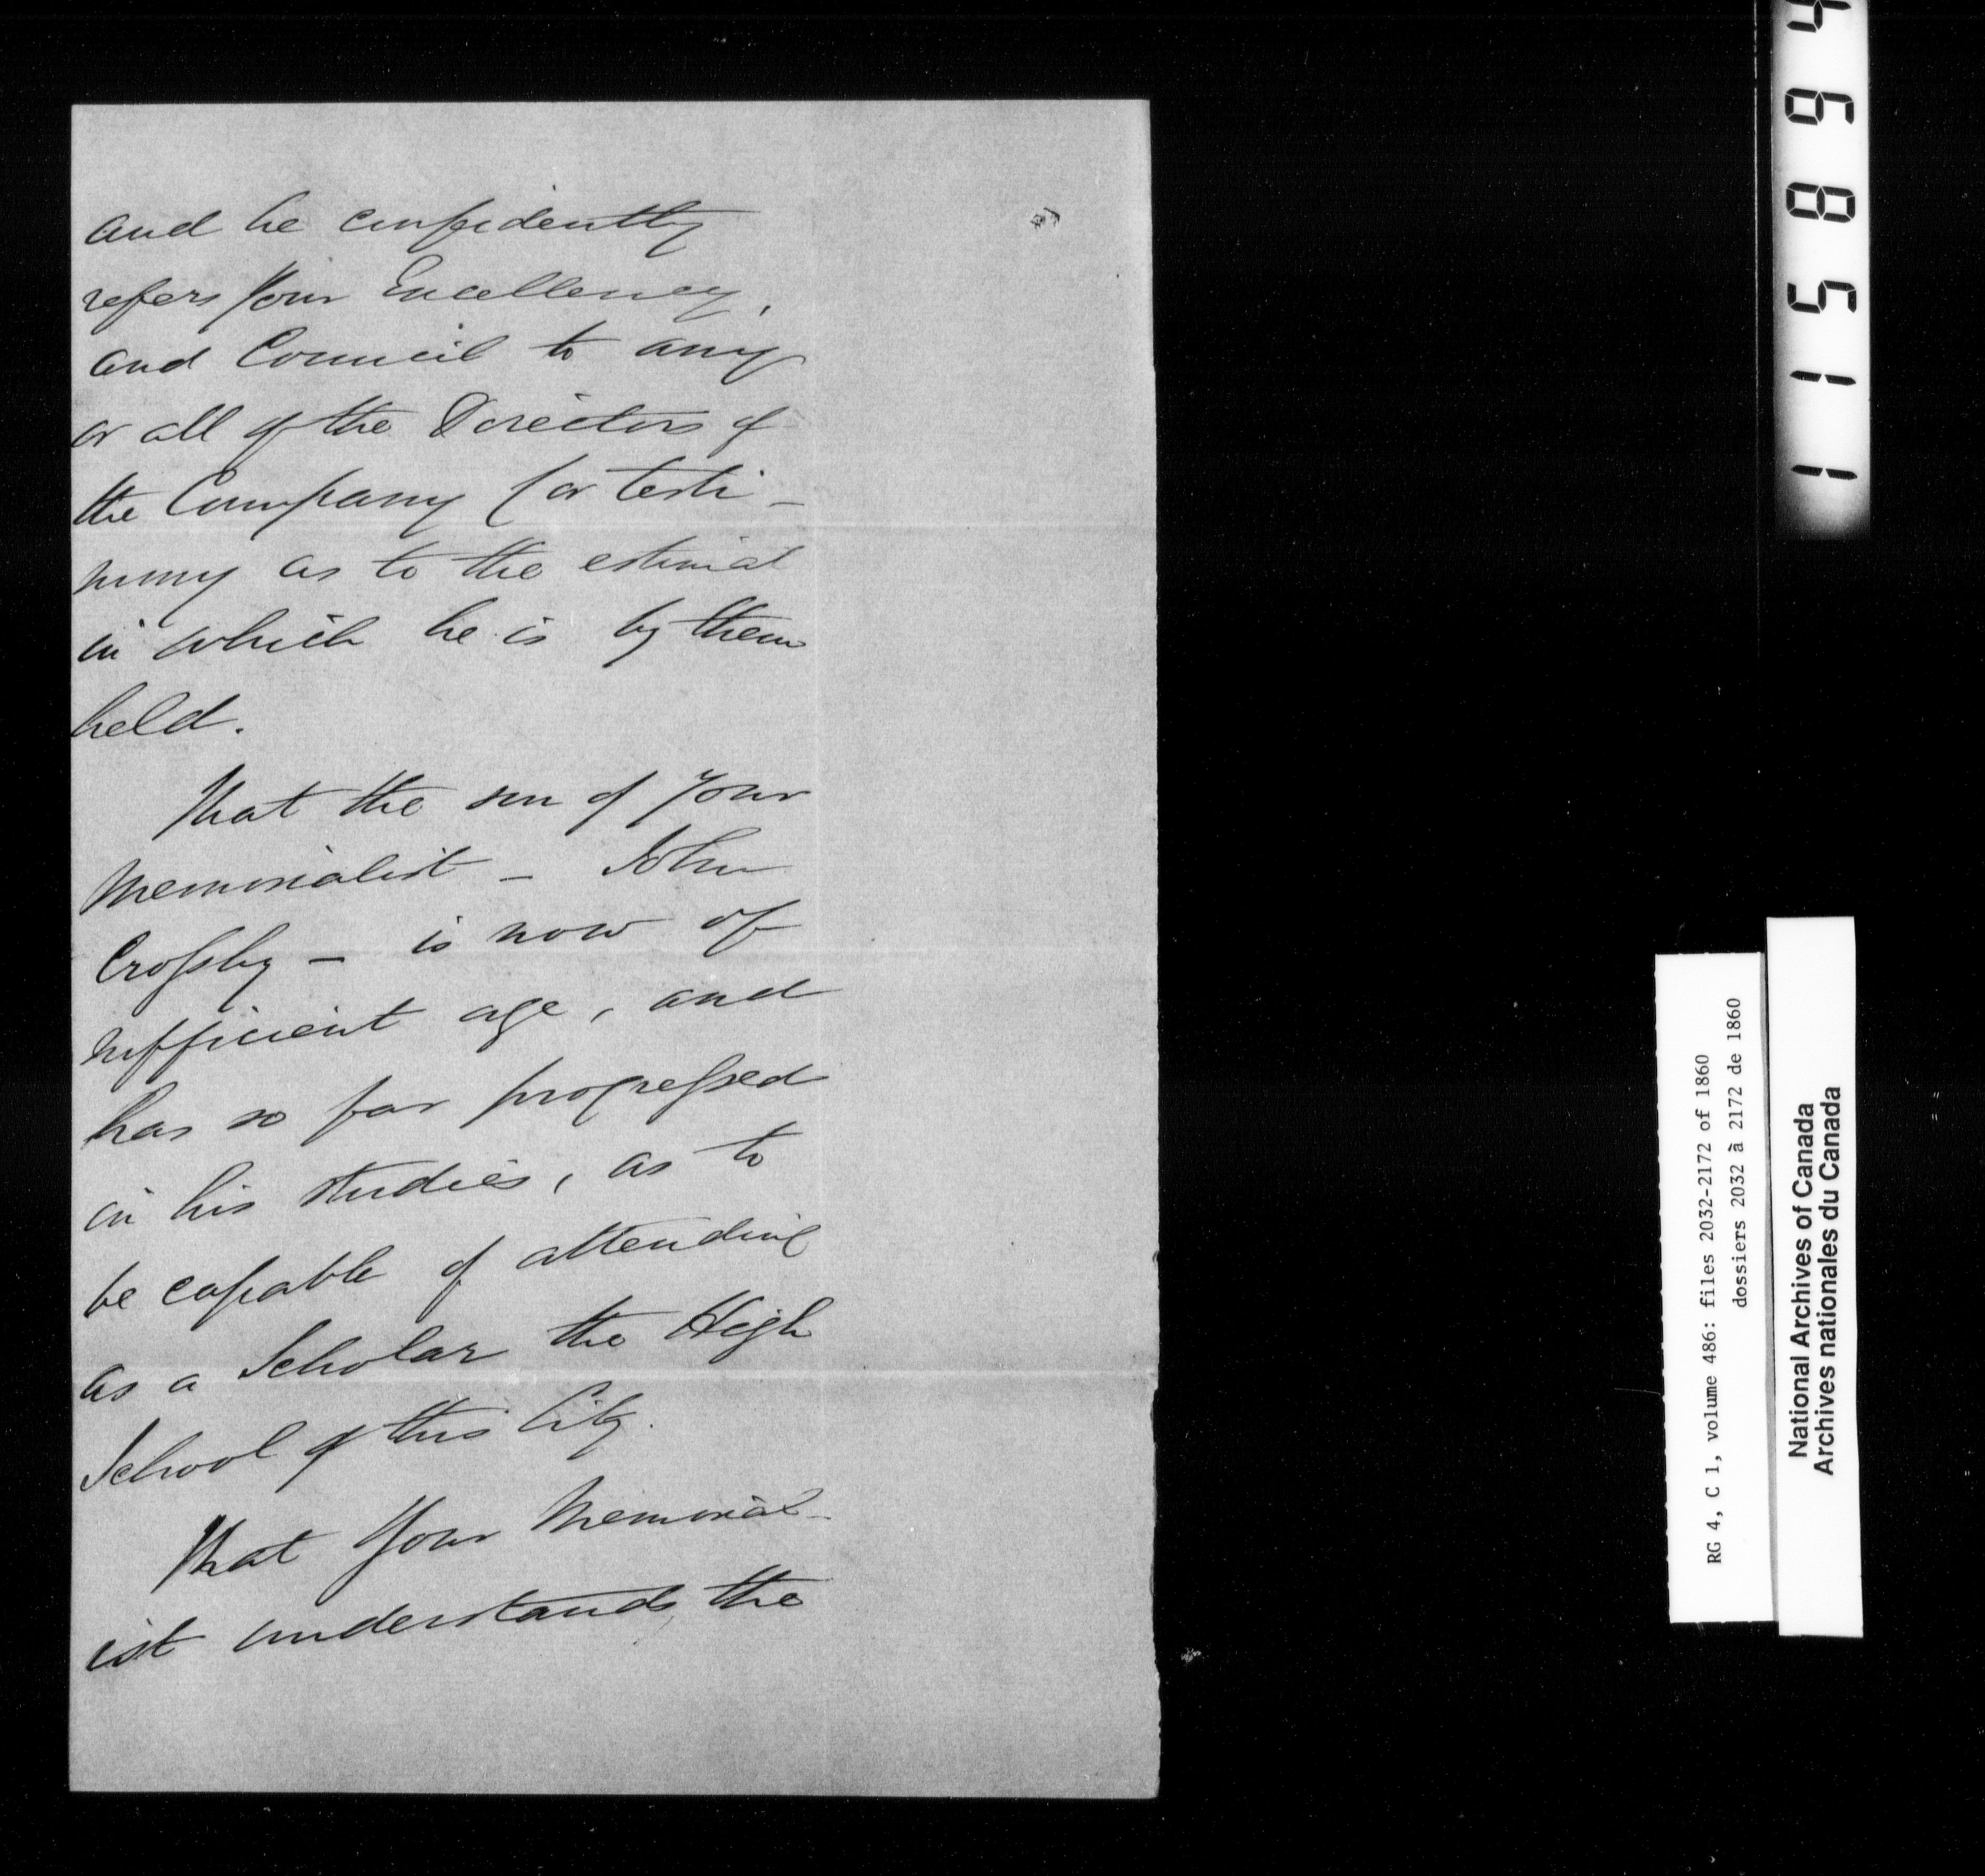 and he confidently
refers Your Excellency,
and Council to any
or all of the Directors of
the Company for testi-
mony as to the estimat
in which he is by them
held.
That the son of Your
Memorialist - John
Crossby - is now of
sufficient age, and
has so far progressed
in his studies, as to
be capable of attending
as a Scholar the High
School of this City.
That Your Memorial-
ist understands the
115894
RG 4, C 1, volume 486: files 2032-2172 of 1860
dossiers 2032 à 2172 de 1860
National Archives of Canada
Archives nationales du Canada